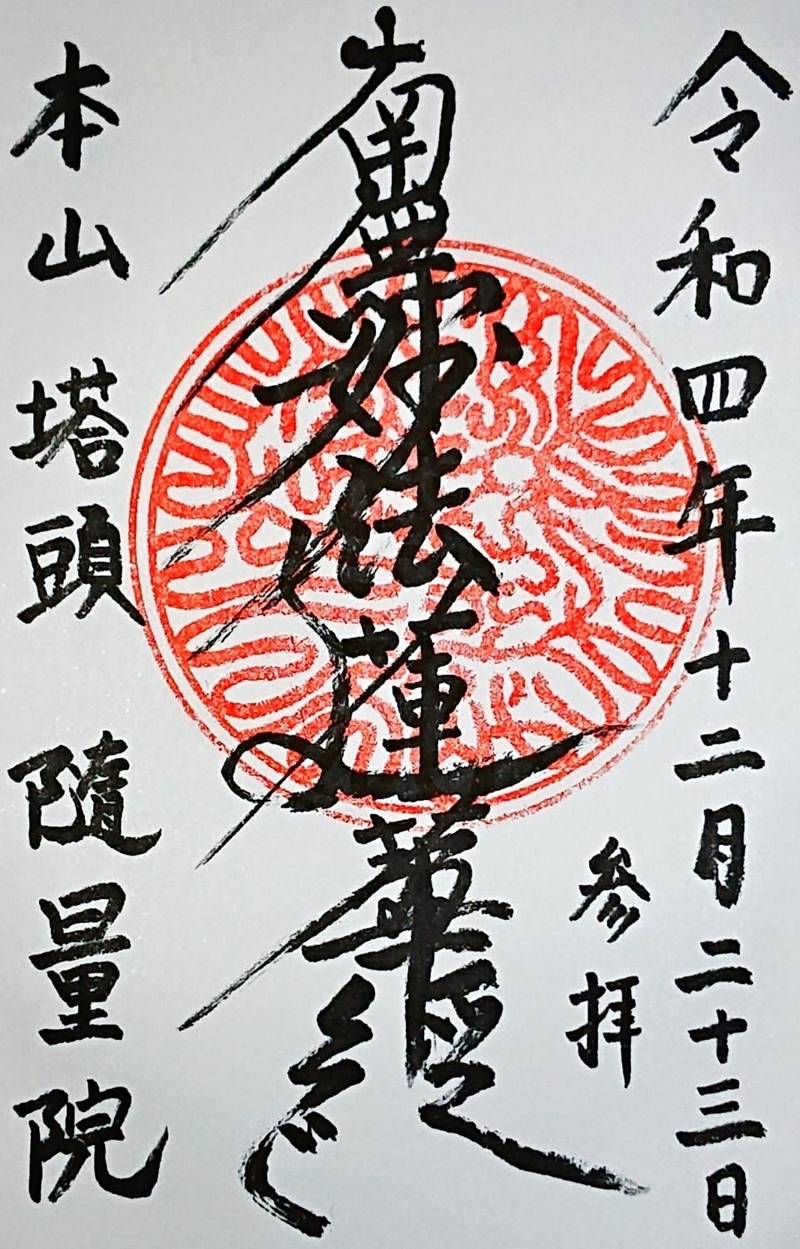 令和四年十二月二十三日
参拝
南無妙法蓮華経
本山 塔頭 隨量院